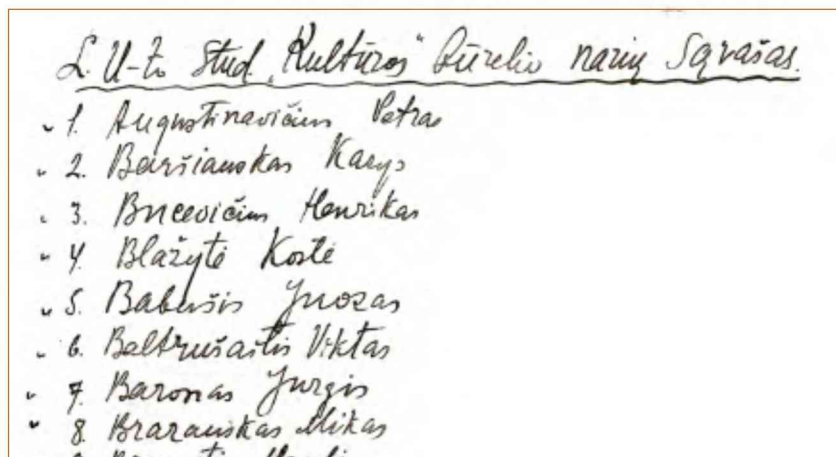 L. U-to Stud. „Kultūros" Būrelio narių Sąrašas.
1. Augustinavičius Petras
2. Baršiauskas Kazys
3. Bucevičius Henrikas
4. Blažytė Kostė
5. Babušis Juozas
6. Baltrušaitis Viktas
7. Baronas Jurgis
8. Brazauskas Mikas
9.